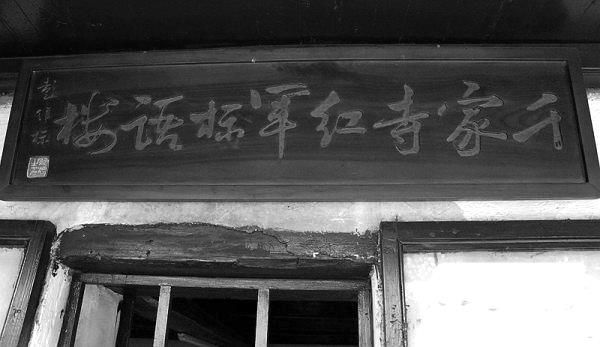 千家寺红军标语楼